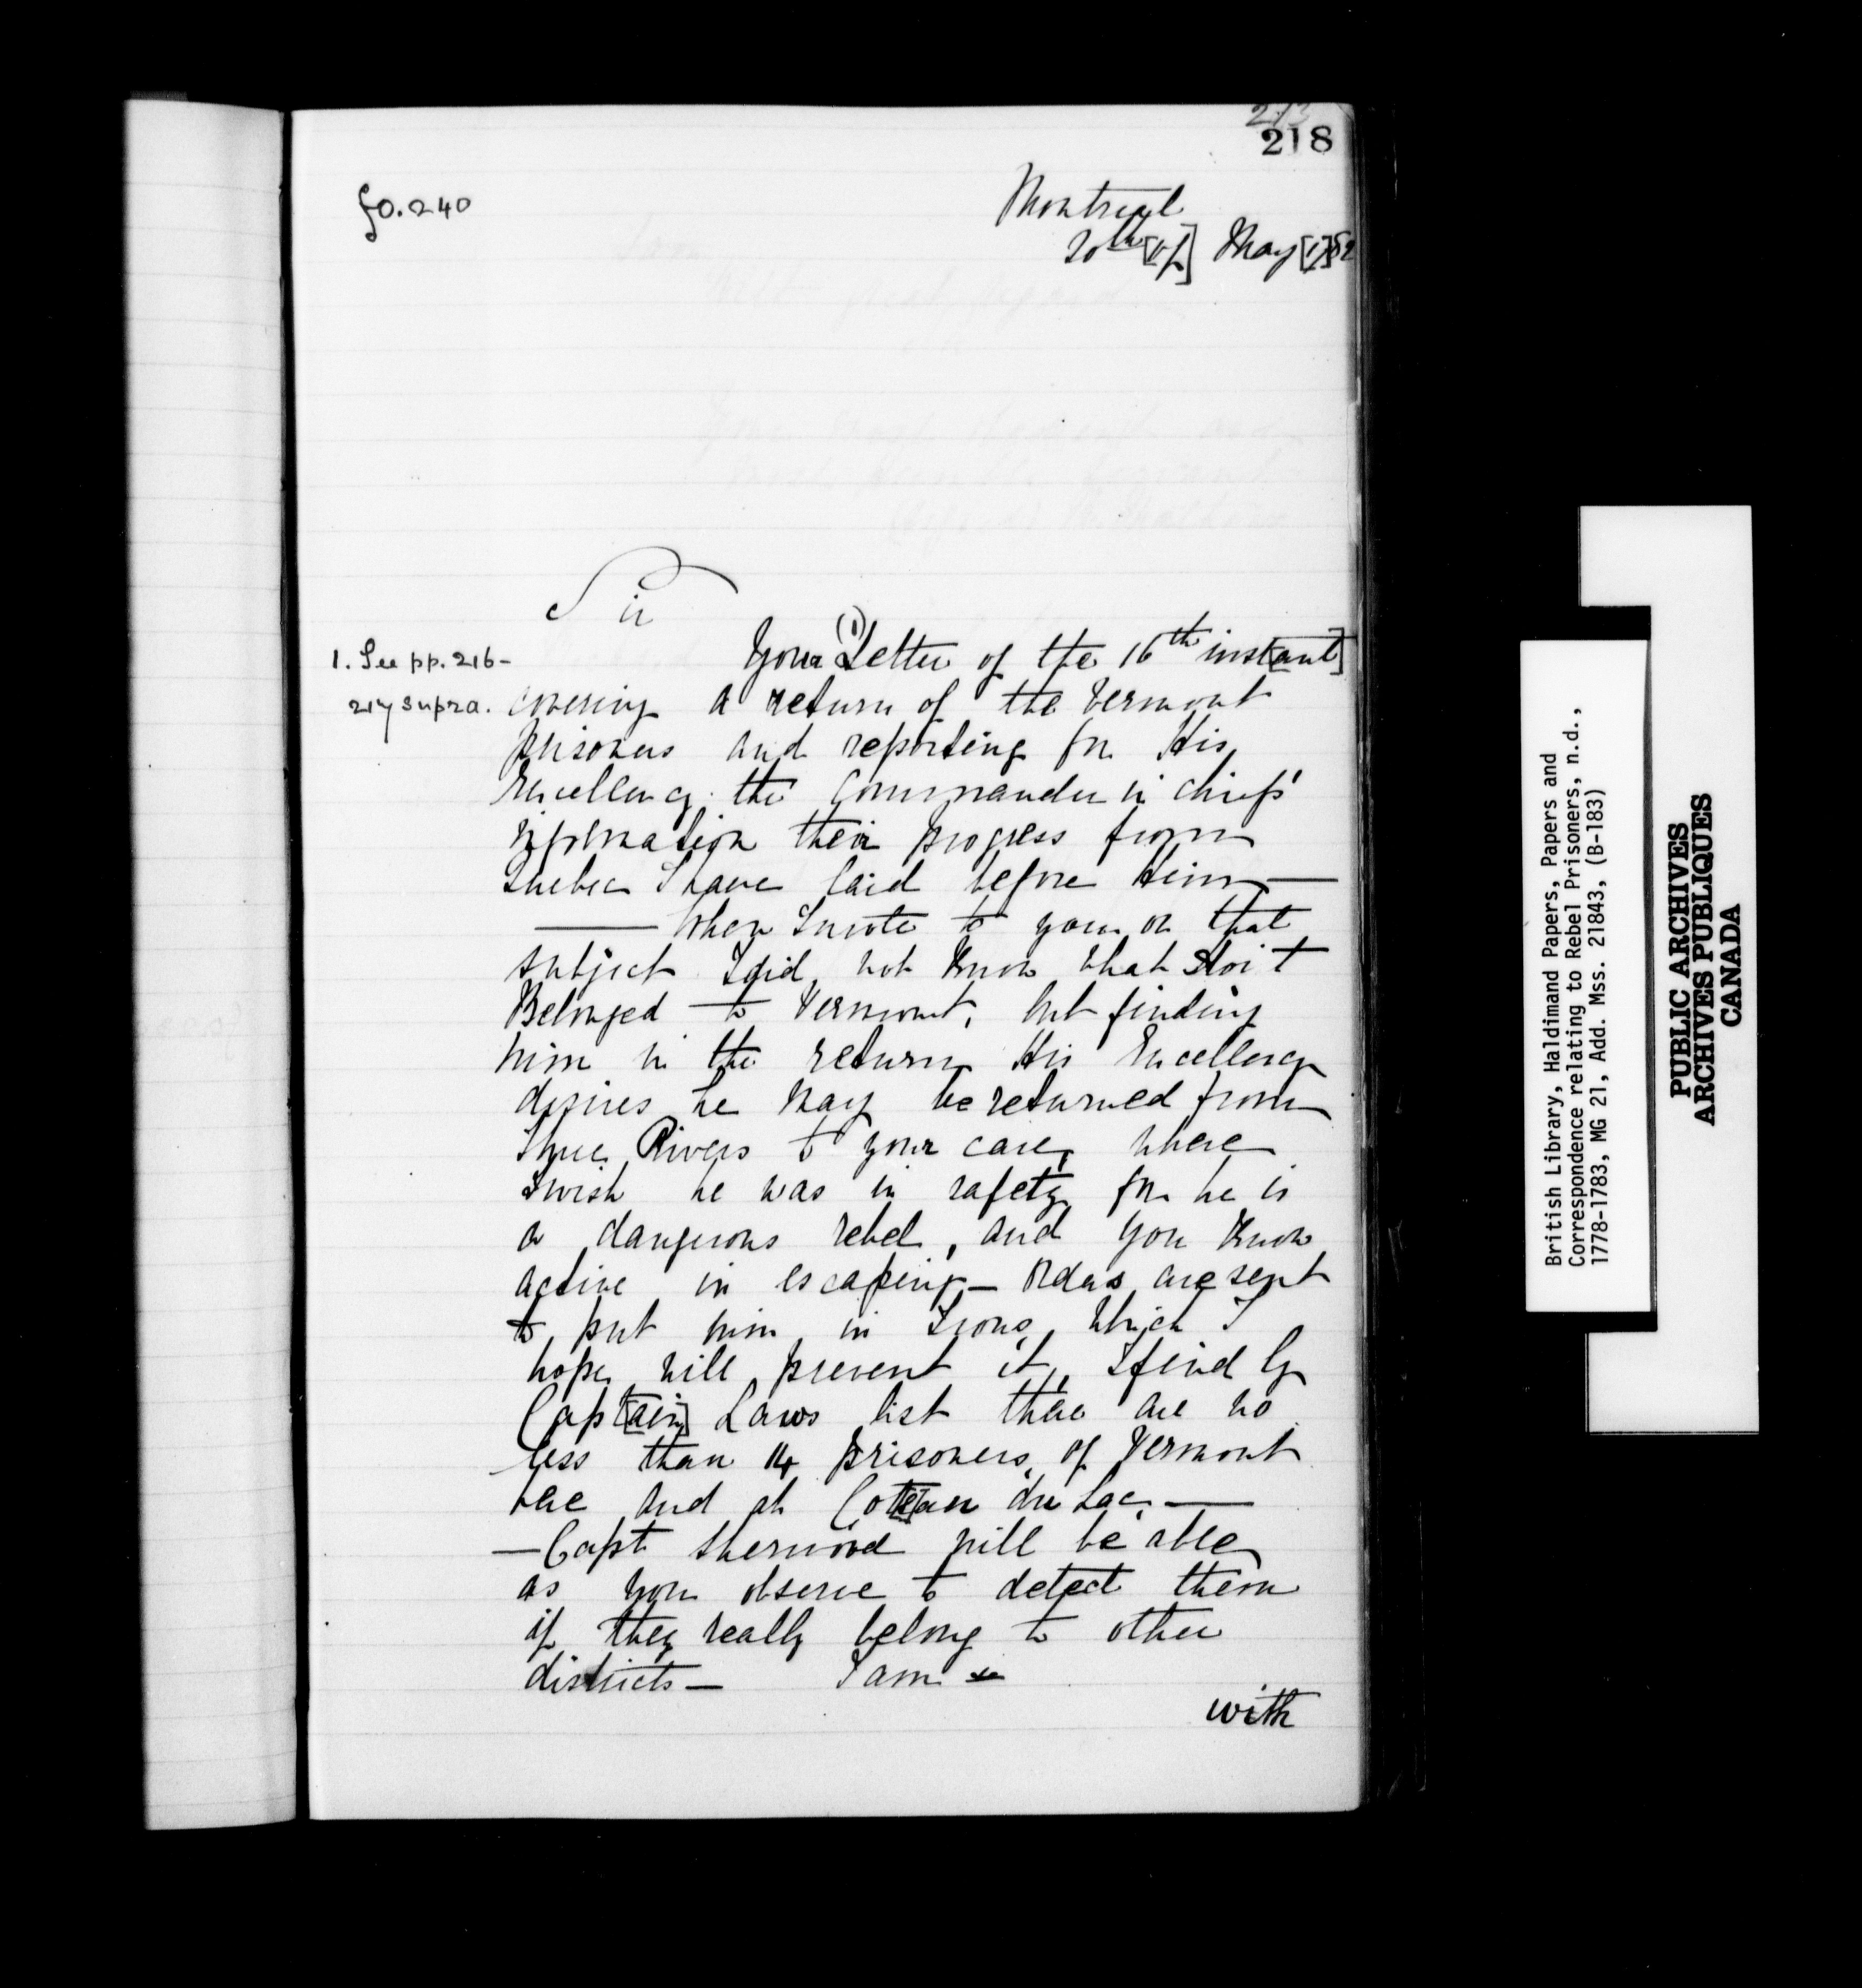 218
fo. 240
Montreal
20th [of] May [17]82
Sir
1. See pp. 216-
217 supra.
Your (1) Letter of the 16th inst[ant]
covering a return of the Vermont
prisoners and reporting for His
Excellency the Commander in chiefs'
information their progress from
Quebec I have laid before Him —
— When I wrote to you on that
subject I did not know that
Belonged to Vermont, but finding
him in the return His Excellency
desires he may be returned from
Three Rivers to your care, where
I wish he was in safety for he is
a dangerous rebel, and you know
active in escaping — Orders are sent
to put him in Irons, which I
hope will prevent it, I find by
Capt[ain] Laws list there are no
less than 14 prisoners of Vermont
here and at Cot[e]au du Lac —
— Capt Sherwood will be able
as you observe to detect them
if they really belong to other
districts — I am &c
with
British Library, Haldimand Papers, Papers and
Correspondence relating to Rebel Prisoners, n.d.,
1778-1783, MG 21, Add. Mss. 21843, (B-183)
PUBLIC ARCHIVES
ARCHIVES PUBLIQUES
CANADA